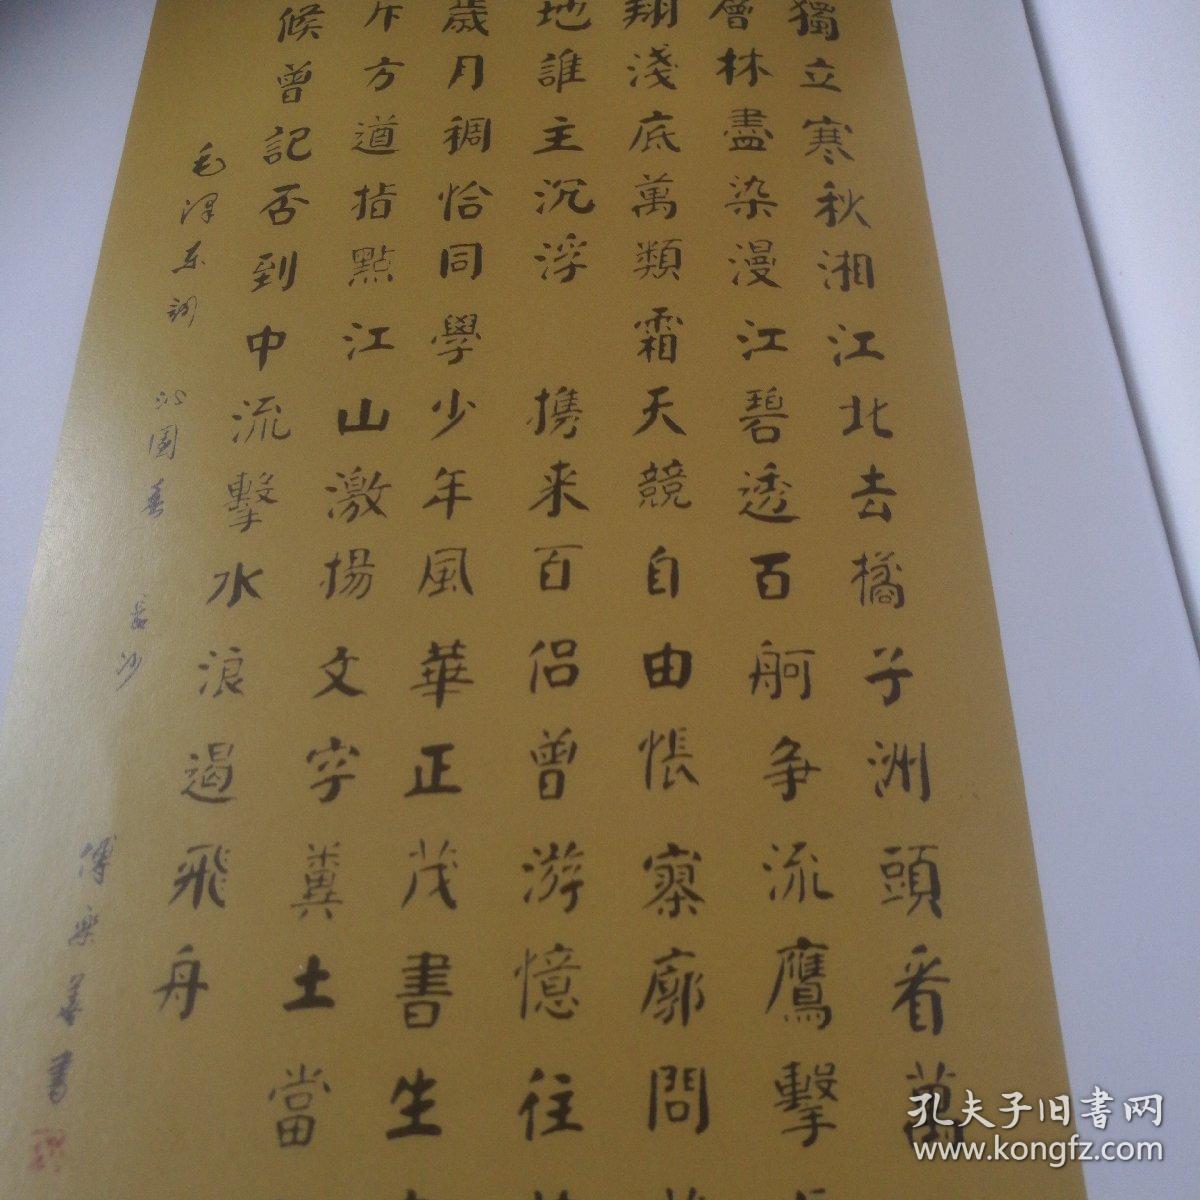 獨立寒秋湘江北去橘子洲頭看萬
層林盡染漫江碧透百舸争流鷹擊
翔淺底萬類霜天競自由悵寥廓問
地誰主沉浮 携来百侣曾游憶往
歲月稠恰同學少年風華正茂書生
斥方遒指點江山激揚文字糞土當
候曾記否到中流擊水浪遏飛舟
毛澤东词 沁園春 長沙 傅樂善書
孔夫子旧书网
www.kongfz.com